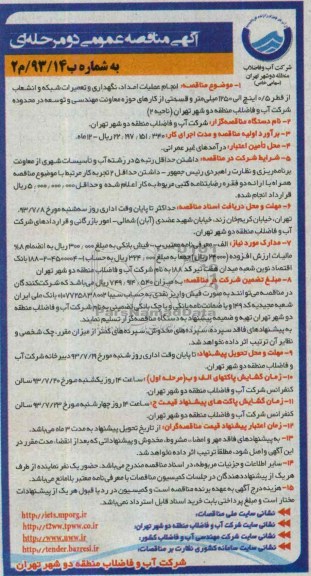 شرکت آب و فاضلاب
منطقه دو شهر تهران
(سهامی خاص)
آگهی مناقصه عمومی دو مرحله‌ای
به شماره ب۹۳/۱۴/م۲
۱- موضوع مناقصه: انجام عملیات امداد، نگهداری و تعمیرات شبکه و انشعاب
از قطر ۰/۵ اینچ الی ۱۲۵۰ میلی‌متر و قسمتی از کارهای حوزه معاونت مهندسی و توسعه در محدوده
شرکت آب و فاضلاب منطقه دو شهر تهران (ناحیه ۲)
۲- نام دستگاه مناقصه‌گزار: شرکت آب و فاضلاب منطقه دو شهر تهران.
۳- برآورد اولیه مناقصه و مدت اجرای کار: ۲۲٬۱۹۷٬۱۵۱٬۳۴۰ ریال - ۱۲ ماه.
۴- محل تأمین اعتبار: درآمدهای غیر عمرانی.
۵- شرایط شرکت در مناقصه: داشتن حداقل رتبه ۵ در رشته آب و تأسیسات شهری از معاونت
برنامه‌ریزی و نظارت راهبردی رئیس جمهور - داشتن حداقل ۲ تجربه کار مرتبط با موضوع مناقصه
همراه با ارائه دو فقره رضایتنامه کتبی مربوط به کار اعلام شده و حداقل ۵٬۰۰۰٬۰۰۰٬۰۰۰ ریال
قرارداد انجام شده.
۶- مهلت و محل دریافت اسناد مناقصه: حداکثر تا پایان وقت اداری روز سه‌شنبه مورخ ۹۳/۷/۸
تهران، خیابان کریم‌خان زند، خیابان شهید عضدی (آبان) شمالی- امور بازرگانی و قراردادهای شرکت
آب و فاضلاب منطقه دو شهر تهران.
۷- مدارک مورد نیاز: الف- معرفی‌نامه معتبر ب- فیش بانکی به مبلغ ۳۰۰٬۰۰۰ ریال به انضمام ۸٪
مالیات ارزش افزوده (۲۴۰۰۰ ریال) جمعا به مبلغ ۳۲۴٬۰۰۰ ریال به حساب
اقتصاد نوین شعبه میدان هفت تیر کد ۱۸۸ به نام شرکت آب و فاضلاب منطقه دو شهر تهران
۸- مبلغ تضمین شرکت در مناقصه: به میزان ۷۴۹٬۹۴۰٬۵۴۰ ریال می‌باشد که شرکت‌کنندگان
در مناقصه می‌توانند به صورت فیش واریز نقدی به حساب سیبا بانک ملی ایران
شعبه مجیدیه کد ۱۴۹ و یا ضمانت‌نامه بانکی و یا چک بانکی تضمینی به نام شرکت آب و فاضلاب منطقه
دو شهر تهران تهیه و ضمیمه پیشنهاد به دستگاه مناقصه‌گزار تسلیم نمایند.
به پیشنهادهای فاقد سپرده، سپرده‌های مخدوش، سپرده‌های کمتر از میزان مقرر، چک شخصی و
نظایر آن ترتیب اثر داده نخواهد شد.
۹- مهلت و محل تحویل پیشنهاد: تا پایان وقت اداری روز شنبه مورخ ۹۳/۷/۱۹ دبیرخانه شرکت آب
و فاضلاب منطقه دو شهر تهران.
۱۰- زمان گشایش پاکتهای الف و ب (مرحله اول): ساعت ۱۴ روز یکشنبه مورخ ۹۳/۷/۲۰ سالن
کنفرانس شرکت آب و فاضلاب منطقه دو شهر تهران.
۱۱- زمان گشایش پاکت‌های پیشنهاد قیمت ج: ساعت ۱۴ روز چهارشنبه مورخ ۹۳/۷/۲۳ سالن
کنفرانس شرکت آب و فاضلاب منطقه دو شهر تهران.
۱۲- زمان اعتبار پیشنهاد قیمت مناقصه‌گران: از تاریخ تحویل پیشنهاد به مدت ۳ ماه می‌باشد.
۱۳- به پیشنهادهای فاقد مهر و امضاء، مشروط، مخدوش و پیشنهاداتی که بعد از انقضاء مدت مقرر در
این آگهی واصل شود، مطلقاً ترتیب اثر داده نخواهد شد.
۱۴- سایر اطلاعات و جزئیات مربوطه، در اسناد مناقصه مندرج می‌باشد. حضور یک نفر نماینده از طرف
هر یک از پیشنهاددهندگان در جلسات کمیسیون مناقصات با معرفی‌نامه معتبر بلامانع می‌باشد.
۱۵- هزینه درج آگهی به عهده برنده مناقصه است و کمیسیون در رد یا قبول هر یک از پیشنهادات
مختار است و مبلغ پرداختی بابت خرید اسناد قابل استرداد نمی‌باشد.
نشانی سایت ملی مناقصات: http://iets.mporg.ir
نشانی سایت شرکت آب و فاضلاب منطقه دو شهر تهران: http://t2ww.tpww.co.ir
نشانی سایت شرکت مهندسی آب و فاضلاب کشور: http://www.nww.ir
نشانی سایت سامانه کشوری نظارت بر مناقصات: http://tender.bazresi.ir
شرکت آب و فاضلاب منطقه دو شهر تهران